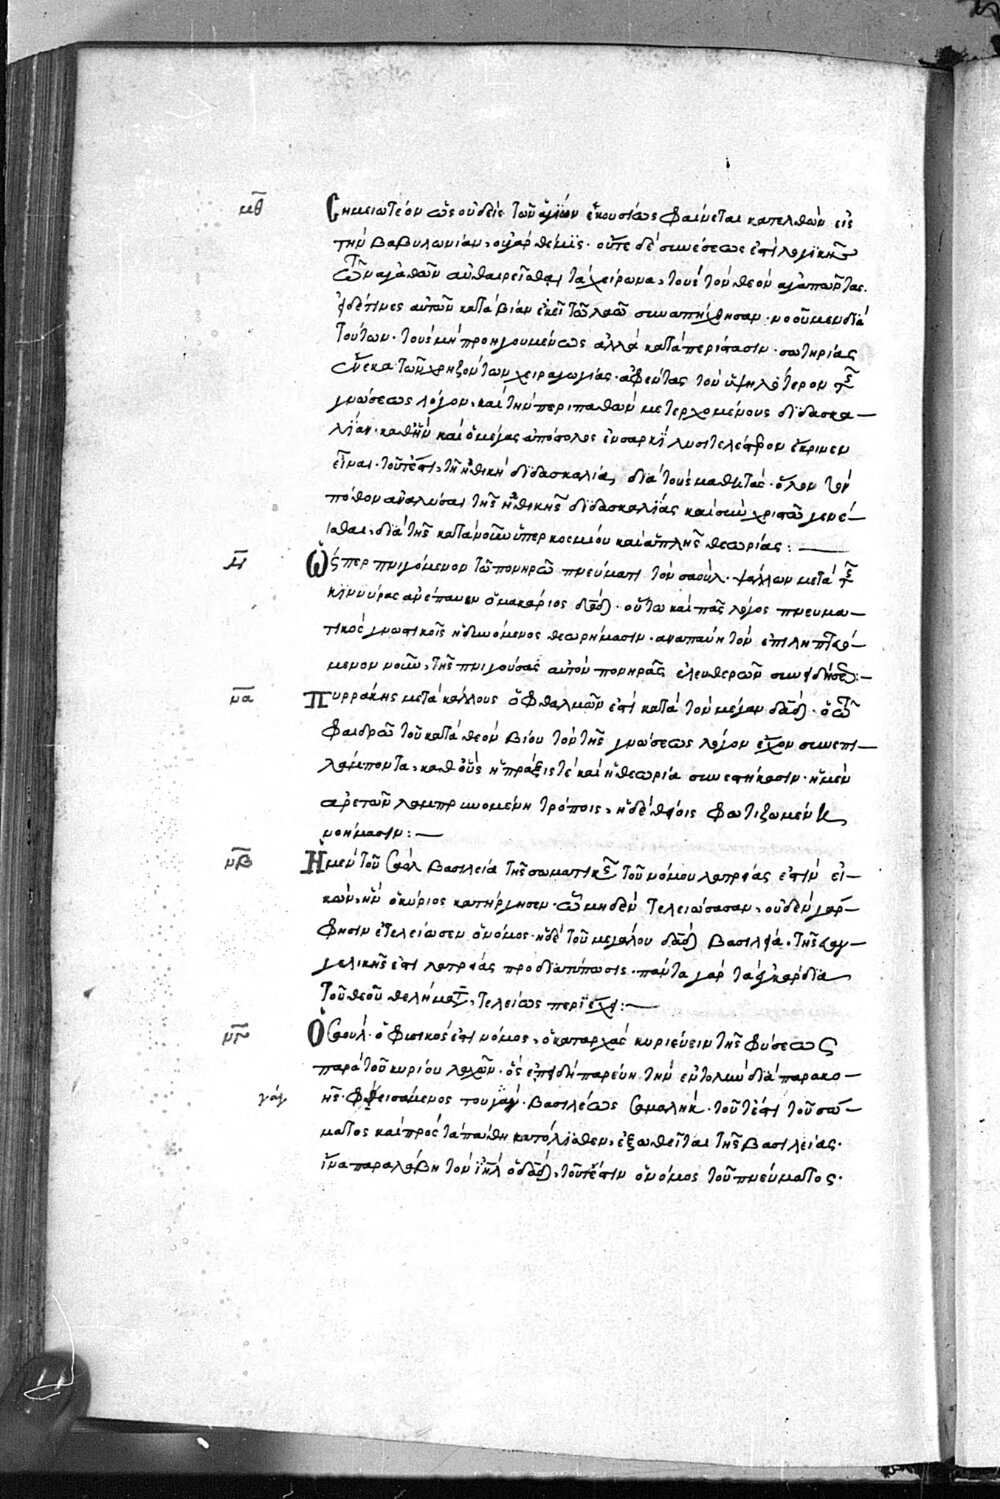 μθ Σημειωτέον ὡς οὐδεὶς τῶν ἁγίων ἑκουσίως φαίνεται κατελθὼν εἰς
τὴν βαβυλωνίαν. οὐ γὰρ θέμις. οὔτε δὲ συνέσεως ἐστὶ λογικῆς
τῶν ἀγαθῶν ἀνθαιρεῖσθαι τὰ χείρωνα, τοὺς τὸν θεὸν ἀγαπῶντας.
εἰ δέ τινες αὐτῶν κατὰ βίαν ἐκεῖ τῶ λαῶ συναπήχθησαν. νοοῦμεν διὰ
τούτων. τοὺς μὴ προηγουμένως ἀλλὰ κατὰ περίστασιν. σωτηρίας
ἕνεκα τῶν χρηζόντων χειραγωγίας. ἀφέντας τὸν ὑψηλότερον τῆς
γνώσεως λόγον, καὶ τὴν περὶ παθῶν μετερχομένους διδασκα-
λίαν. καθ' ἣν καὶ ὁ μέγας ἀπόστολος ἐν σαρκὶ λυσιτελέστερον ἔκρινεν
εἶναι. τουτέστι, τῆ ἠθικῆ διδασκαλία, διὰ τοὺς μαθητάς. ὅλον τὸν
πόθον ἀναλῦσαι τῆς ἠθικῆς διδασκαλίας καὶ σὺν χριστῶ γενέ-
σθαι, διὰ τῆς κατὰ νοῦν ὑπερκοσμίου καὶ ἁπλῆς θεωρίας: —
ν Ὥσπερ πνιγόμενον τῶ πονηρῶ πνεύματι τὸν σαούλ. ψάλλων μετὰ τῆς
κιννύρας ἀνέπαυεν ὁ μακάριος δαδ. οὕτω καὶ πᾶς λόγος πνευμα-
τικὸς γνωστικοῖς ἡδυνόμενος θεωρήμασιν. ἀναπαύει τὸν ἐπιληπτευό-
μενον νοῦν, τῆς πνιγούσης αὐτὸν πονηρᾶς ἐλευθερῶν συνειδήσεως: —
να Πυρράκης μετὰ κάλλους ὀφθαλμῶν ἐστὶ κατὰ τὸν μέγαν δαδ. ὁ τῶ
φαιδρῶ τοῦ κατὰ θεὸν βίου τὸν τῆς γνώσεως λόγον ἔχων συνεπι-
λάμποντα, καθ' οὓς ἡ πρᾶξις τὲ καὶ ἡ θεωρία συνεστήκασιν. ἡ μὲν
ἀρετῶν λαμπρυνομένη τρόποις, ἡ δὲ θείοις φωτιζομένη
νοήμασιν: —
νβ Ἡ μὲν τοῦ σαοὺλ βασιλεία τῆς σωματικῆς τοῦ νόμου λατρείας ἐστὶν εἰ-
κών, ἣν ὁ κύριος κατήργησεν. ὡς μηδὲν τελειώσασαν, οὐδὲν γάρ
φησιν ἐτελείωσεν ὁ νόμος. ἡ δὲ τοῦ μεγάλου δαδ βασιλεία. τῆς εὐαγ-
γελικῆς ἐστὶ λατρείας προδιατύπωσις. πάντα γὰρ τὰ ἐγκάρδια
τοῦ θεοῦ θελήματα, τελείως περιέχει: —
νγ Ὁ σαούλ. ὁ φυσικός ἐστι νόμος, ὁ καταρχὰς κυριεύειν τῆς φύσεως
παρὰ τοῦ κυρίου λαχών. ὃς ἐπειδὴ παρεύη τὴν ἐντολὴν διὰ παρακο-
γάγ ῆς. φεισάμενος τοῦ γὰγ. βασιλέως ἀμαλήκ. τουτέστι τοῦ σώ-
ματος καὶ πρὸς τὰ πάθη κατολίσθεν, ἐξωθεῖται τῆς βασιλείας.
ἵνα παραλάβη τὸν ἰηλ ὁ δαδ, τουτέστιν ὁ νόμος τοῦ πνεύματος.